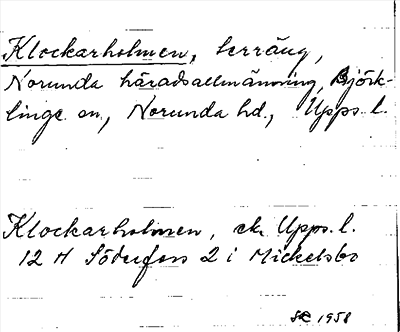 Klockarholmen, terräng,
Norunda häradsallmänning, Björk-
linge sn, Norunda hd., Upps. l.
Klockarholmen, ek. Upps. l.
12 H Söderfors 2 i Mickelsbo
1958